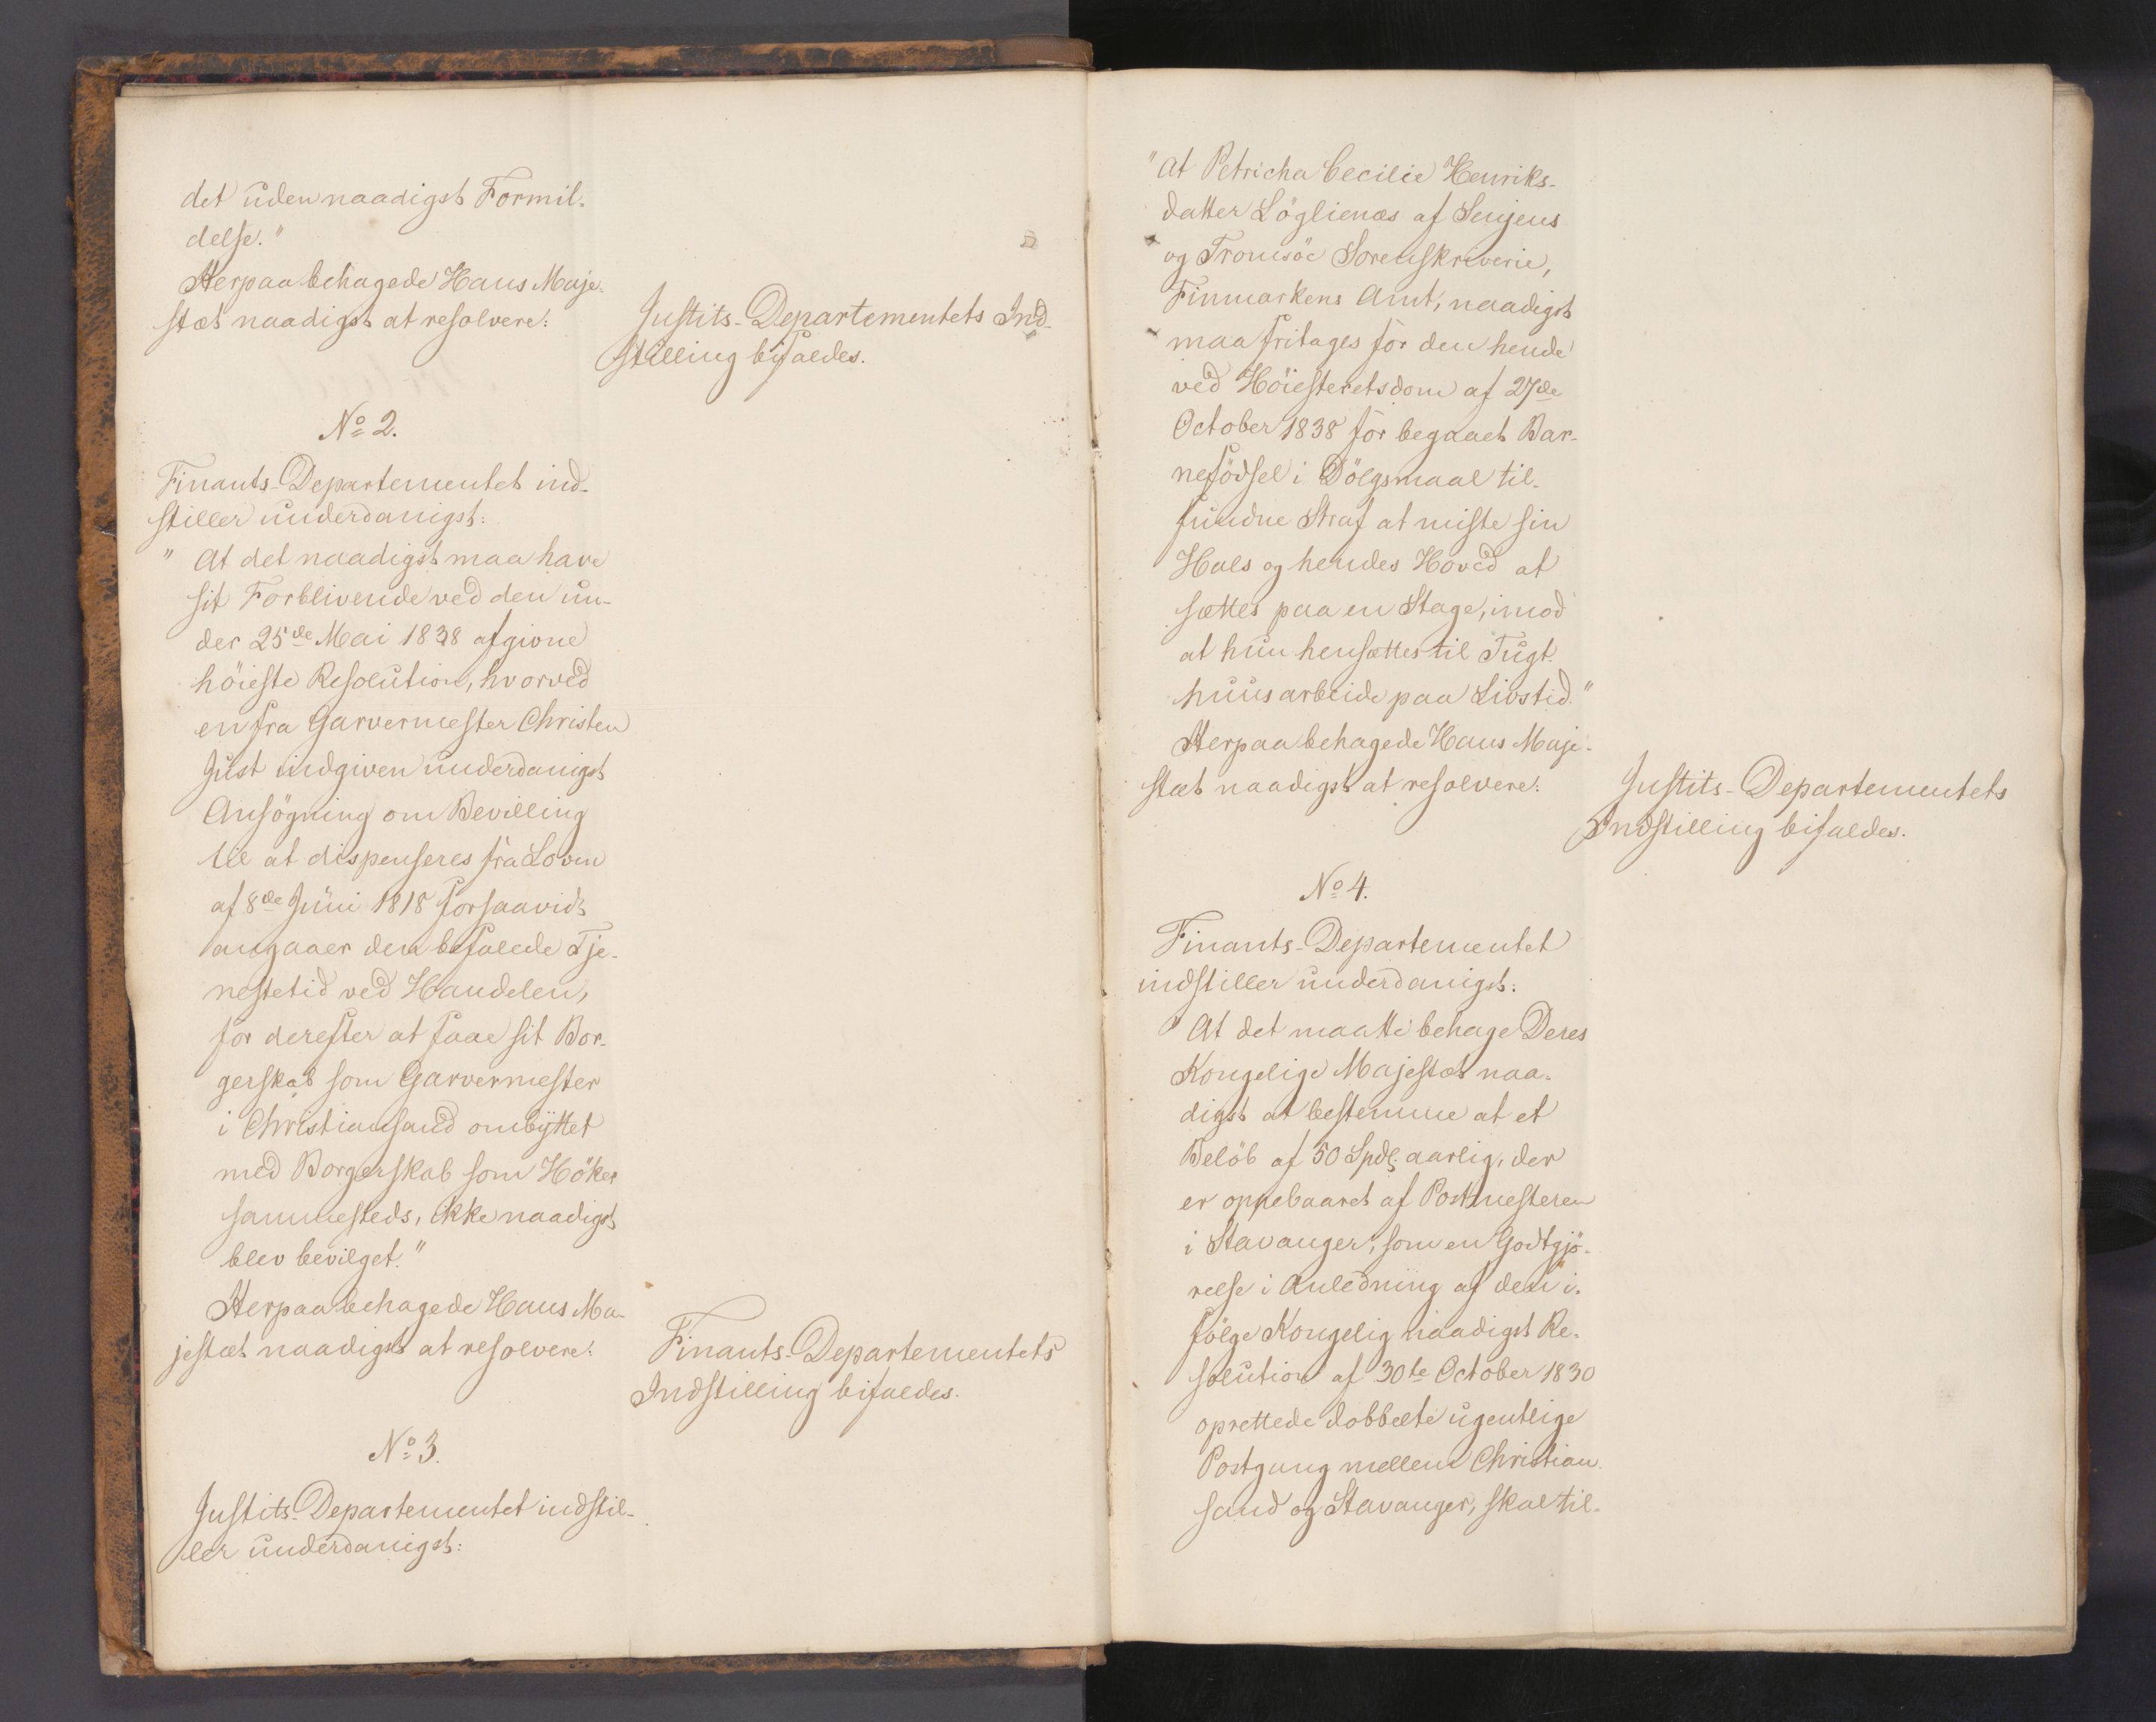 det uden naadigst Formil-
delse."
Herpaa behagede Hans Maje-
stæt naadigst at resolvere:
Justits-Departementets Ind-
stilling bifaldes.
No 2.
Finants-Departementet ind-
stiller underdanigst:
" At det naadigst maa have
sit Forblivende ved den un-
der 25de Mai 1838 afgivne
höieste Resolution, hvorved
en fra Garvermester Christen
Just indgiven underdanigst
Ansögning om Bevilling
til at dispenseres fra Loven
af 8de Juni 1818 forsaavidt
angaaer den befalede Tje-
nestetid ved Handelen,
for derefter at faae sit Bor-
gerskab som Garvermester
i Christiansand ombyttet
med Borgerskab som Höker
sammesteds, ikke naadigst
blev bevilget."
Herpaa behagede Hans Ma-
jestæt naadigst at resolvere:
Finants-Departementets
Indstilling bifaldes.
No 3.
Justits-Departementet indstil-
ler underdanigst:
"At Petricha Cecilie Henriks-
datter Löglienæs af Senjens
og Tromsöe Sorenskriverie,
Finmarkens Amt, naadigst
maa fritages for den hende
ved Höiesteretsdom af 27de
October 1838 for begaaet Bar-
nefödsel i Dölgsmaal til-
fundne Straf at miste sin
Hals og hendes Hoved at
sættes paa en Stage, imod
at hun hensættes til Tugt-
huusarbeide paa Livstid."
Herpaa behagede Hans Maje-
stæt naadigst at resolvere:
Justits-Departementets
Indstilling bifaldes.
No 4.
Finants-Departementet
indstiller underdanigst:
" At det maatte behage Deres
Kongelige Majestæt naa-
digst at bestemme at et
Belöb af 50 Spdl. aarlig, der
er oppebaaret af Postmesteren
i Stavanger, som en Godtgjö-
relse i Anledning af den i-
fölge Kongelig naadigst Re-
solution af 30te October 1830
oprettede dobbelte ugentlige
Postgang mellem Christian-
sand og Stavanger, skal til-